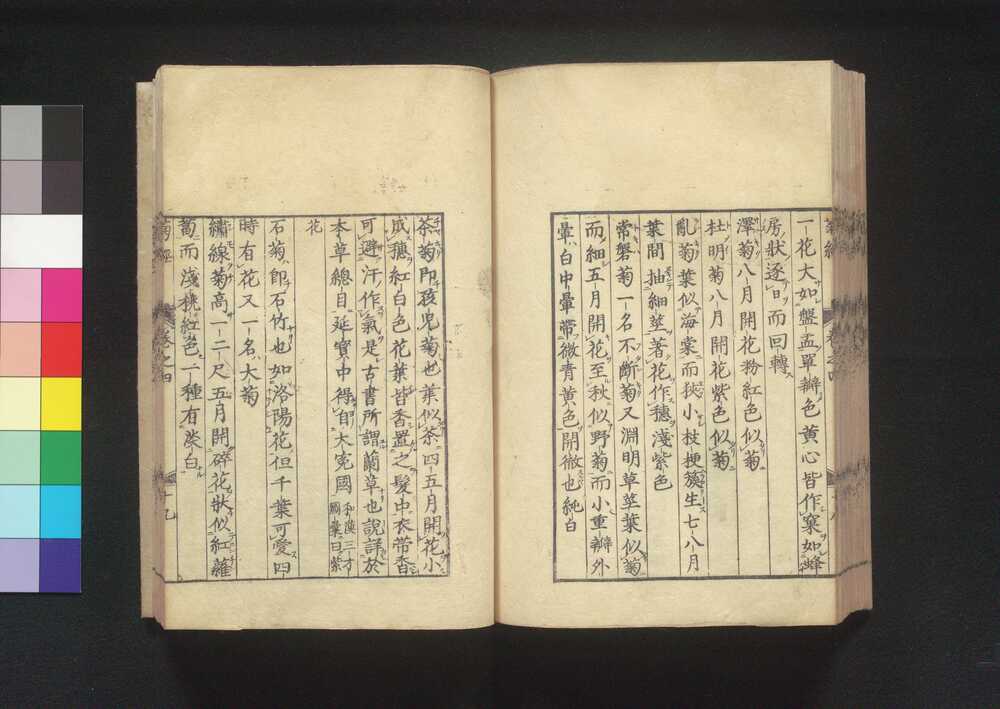 一花大如盤盂單瓣色黄心皆作窠如蜂
房狀逐日而回轉
澤菊八月開花粉紅色似菊
杜明菊八月開花紫色似菊
亂菊葉似海棠而狹小枝梗簇生七八月
葉間抽細莖著花作穗淺紫色
常磐菊一名不斷菊又淵明草莖葉似菊
而細五月開花至秋似野菊而小重瓣外
暈白中暈帶微青黄色開徹也純白
茶菊即孩兒菊也葉似茶四五月開花小
成穗紅白色花葉皆香置之髮中衣帶香
可避汗作氣是古書所謂蘭草也說詳於
本草總目延寳中得自大宛國
和漢三才
圖彙曰紫
花
石菊即石竹也如洛陽花但千葉可愛四
時有花又一名大菊
繡線菊高一二尺五月開碎花狀似紅蘿
蔔而淺桃紅色一種有淡白
卷之四
十九